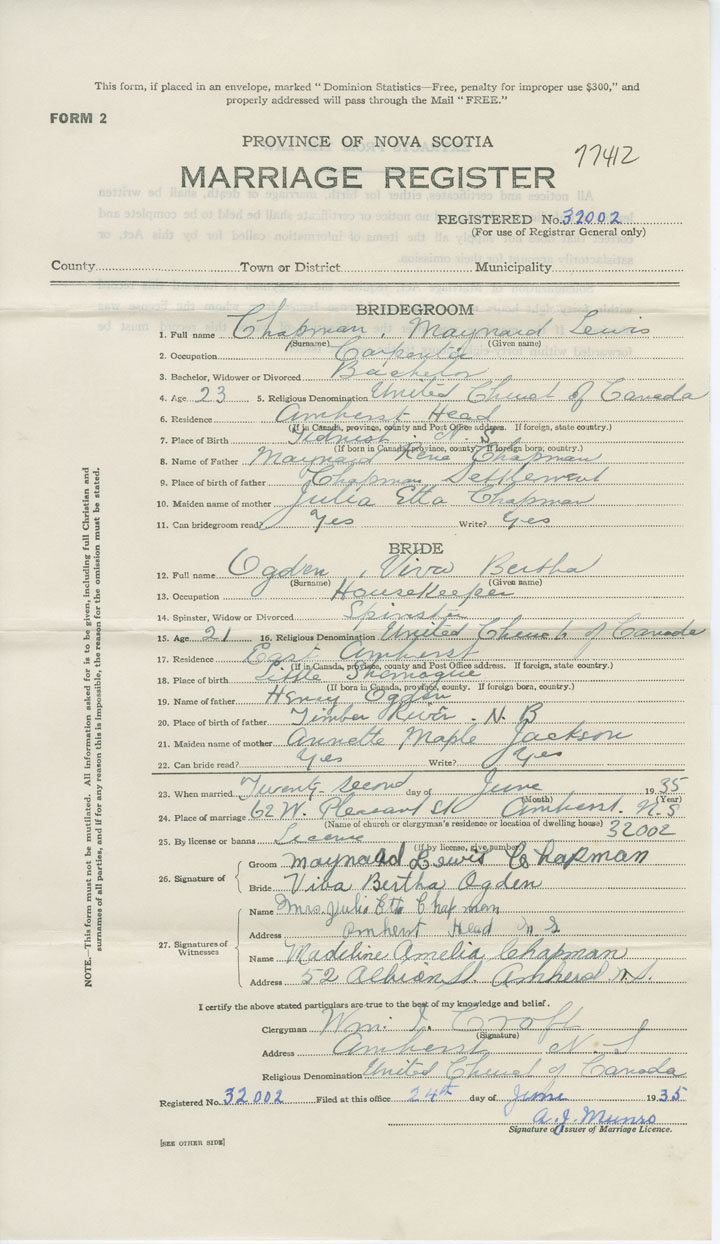 This form, if placed in an envelope, marked "Dominion Statistics—Free, penalty for improper use $300," and
properly addressed will pass through the Mail "FREE."
FORM 2
PROVINCE OF NOVA SCOTIA
77412
MARRIAGE REGISTER
REGISTERED No. 32002
(For use of Registrar General only)
County Town or District Municipality
BRIDEGROOM
1. Full name Chapman, Maynard Lewis
(Surname) (Given name)
2. Occupation Carpenter
3. Bachelor, Widower or Divorced Bachelor
4. Age 23 5. Religious Denomination United Church of Canada
6. Residence Amherst Head
(If in Canada, province, county and Post Office address. If foreign, state country.)
7. Place of Birth Tidnish. N. S
(If born in Canada, province, county. If foreign born, country.)
8. Name of Father Maynard Chapman
9. Place of birth of father Chapman Settlement
10. Maiden name of mother Julia Etta Chapman
11. Can bridegroom read? Yes Write? Yes
BRIDE
12. Full name Ogden, Viva Bertha
(Surname) (Given name)
13. Occupation Housekeeper
14. Spinster, Widow or Divorced Spinster
15. Age 21 16. Religious Denomination United Church of Canada
17. Residence East Amherst
(If in Canada, province, county and Post Office address. If foreign, state country.)
18. Place of birth Little Shemogue
(If born in Canada, province, county. If foreign born, country.)
19. Name of father Henry Ogden
20. Place of birth of father Timber River. N. B
21. Maiden name of mother Annette Maple Jackson
22. Can bride read? Yes Write? Yes
23. When married Twenty-second day of June 1935
(Month) (Year)
24. Place of marriage 62 W. Pleasant St Amherst. N. S
(Name of church or clergyman's residence or location of dwelling house)
25. By license or banns License 32002
(If by license, give number)
26. Signature of
Groom Maynard Lewis Chapman
Bride Viva Bertha Ogden
27. Signatures of Witnesses
Name Mrs. Julia Etta Chapman
Address Amherst Head N S
Name Madeline Amelia Chapman
Address 52 Albion St. Amherst N.S.
I certify the above stated particulars are true to the best of my knowledge and belief.
Clergyman Wm. I. Croft
(Signature)
Address Amherst N. S
Religious Denomination United Church of Canada
Registered No. 32002 Filed at this office 24th day of June 1935
A. J. Munro
Signature of Issuer of Marriage Licence.
[SEE OTHER SIDE]
NOTE.—This form must not be mutilated. All information asked for is to be given, including full Christian and
surnames of all parties, and if for any reason this is impossible, the reason for the omission must be stated.